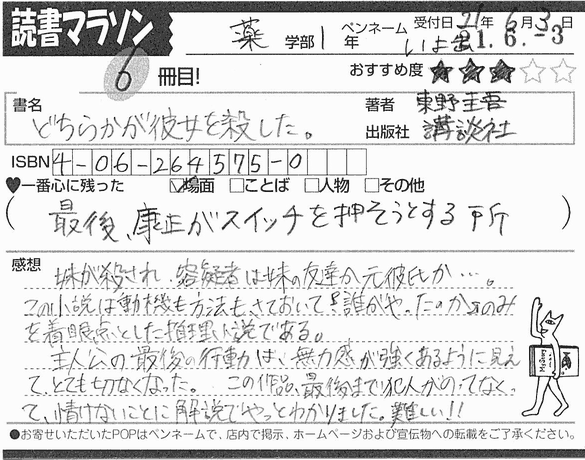 読書マラソン
薬 学部 1 年
ペンネーム いよ
受付日 21年 6月 3日
21.6.-3
6 冊目!
おすすめ度 ★★★☆☆
書名 どちらかが彼女を殺した。
著者 東野圭吾
出版社 講談社
ISBN 4-06-264575-0
♥一番心に残った ☑場面 □ことば □人物 □その他
(最後、康正がスイッチを押そうとする所)
感想
妹が殺され、容疑者は妹の友達か元彼氏か…。
この小説は動機も方法もさておいて"誰がやったのか"のみ
を着眼点とした推理小説である。
主人公の最後の行動は、無力感が強くあるように見え
て、とても切なくなった。 この作品、最後まで犯人がのってなく
て、情けないことに解説でやっとわかりました。難しい!!
●お寄せいただいたPOPはペンネームで、店内で掲示、ホームページおよび宣伝物への転載をご了承ください。